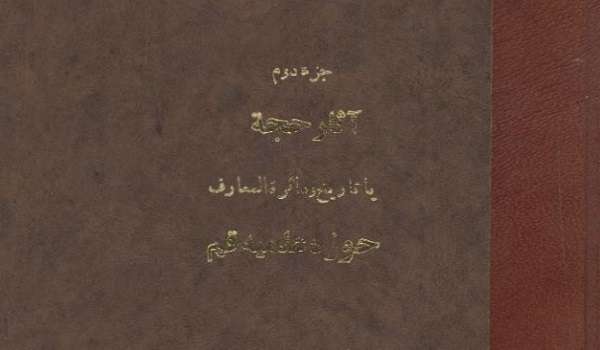 جزء دوم
آثار حجة
یا تاریخ و دائرة المعارف
حوزه علمیه قم